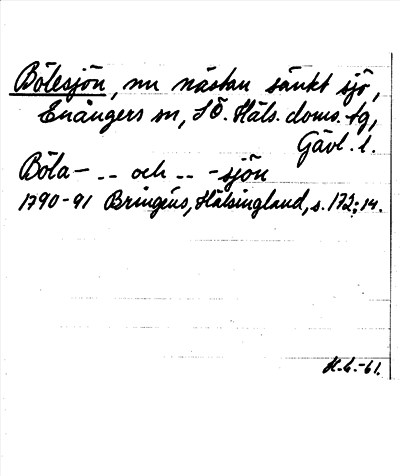 Bölesjön, nu nästan sänkt sjö,
Enångers sn, SÖ. Häls. doms. tg,
Gävl. l.
Böla- .. och .. -sjön
1790-91 Bringéus, Hälsingland, s. 172; 14.
H.G.-61.